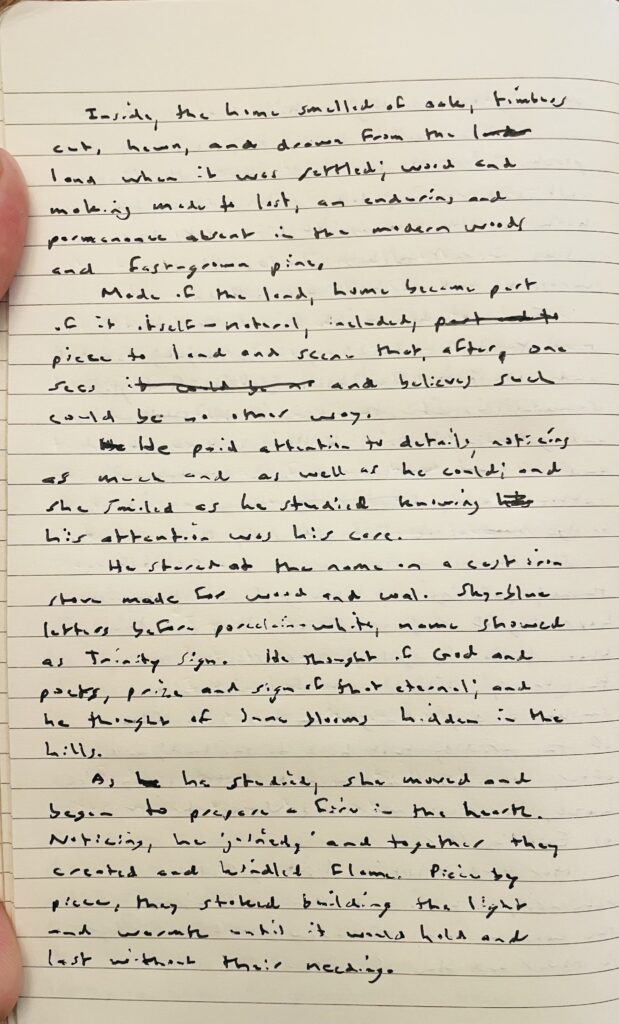 Inside, the home smelled of oak, timbers
cut, hewn, and drawn from the
land when it was settled; wood and
making made to last, an enduring and
permanence absent in the modern woods
and fast-grown pine.
Made of the land, home became part
of it itself—natural, included, part and to
piece to land and scene that, after, one
sees it could be no and believes such
could be no other way.
He He paid attention to details, noticing
as much and as well as he could; and
she smiled as he studied knowing
his attention was his care.
He stared at the name on a cast iron
stove made for wood and coal. Sky-blue
letters before porcelain-white, name showed
as Trinity sign. He thought of God and
poets, prize and sign of that eternal; and
he thought of June blooms hidden in the
hills.
As he he studied, she moved and
began to prepare a fire in the hearth.
Noticing, he 'joined,' and together they
created and kindled flame. Piece by
piece, they stoked building the light
and warmth until it would hold and
last without their needing.